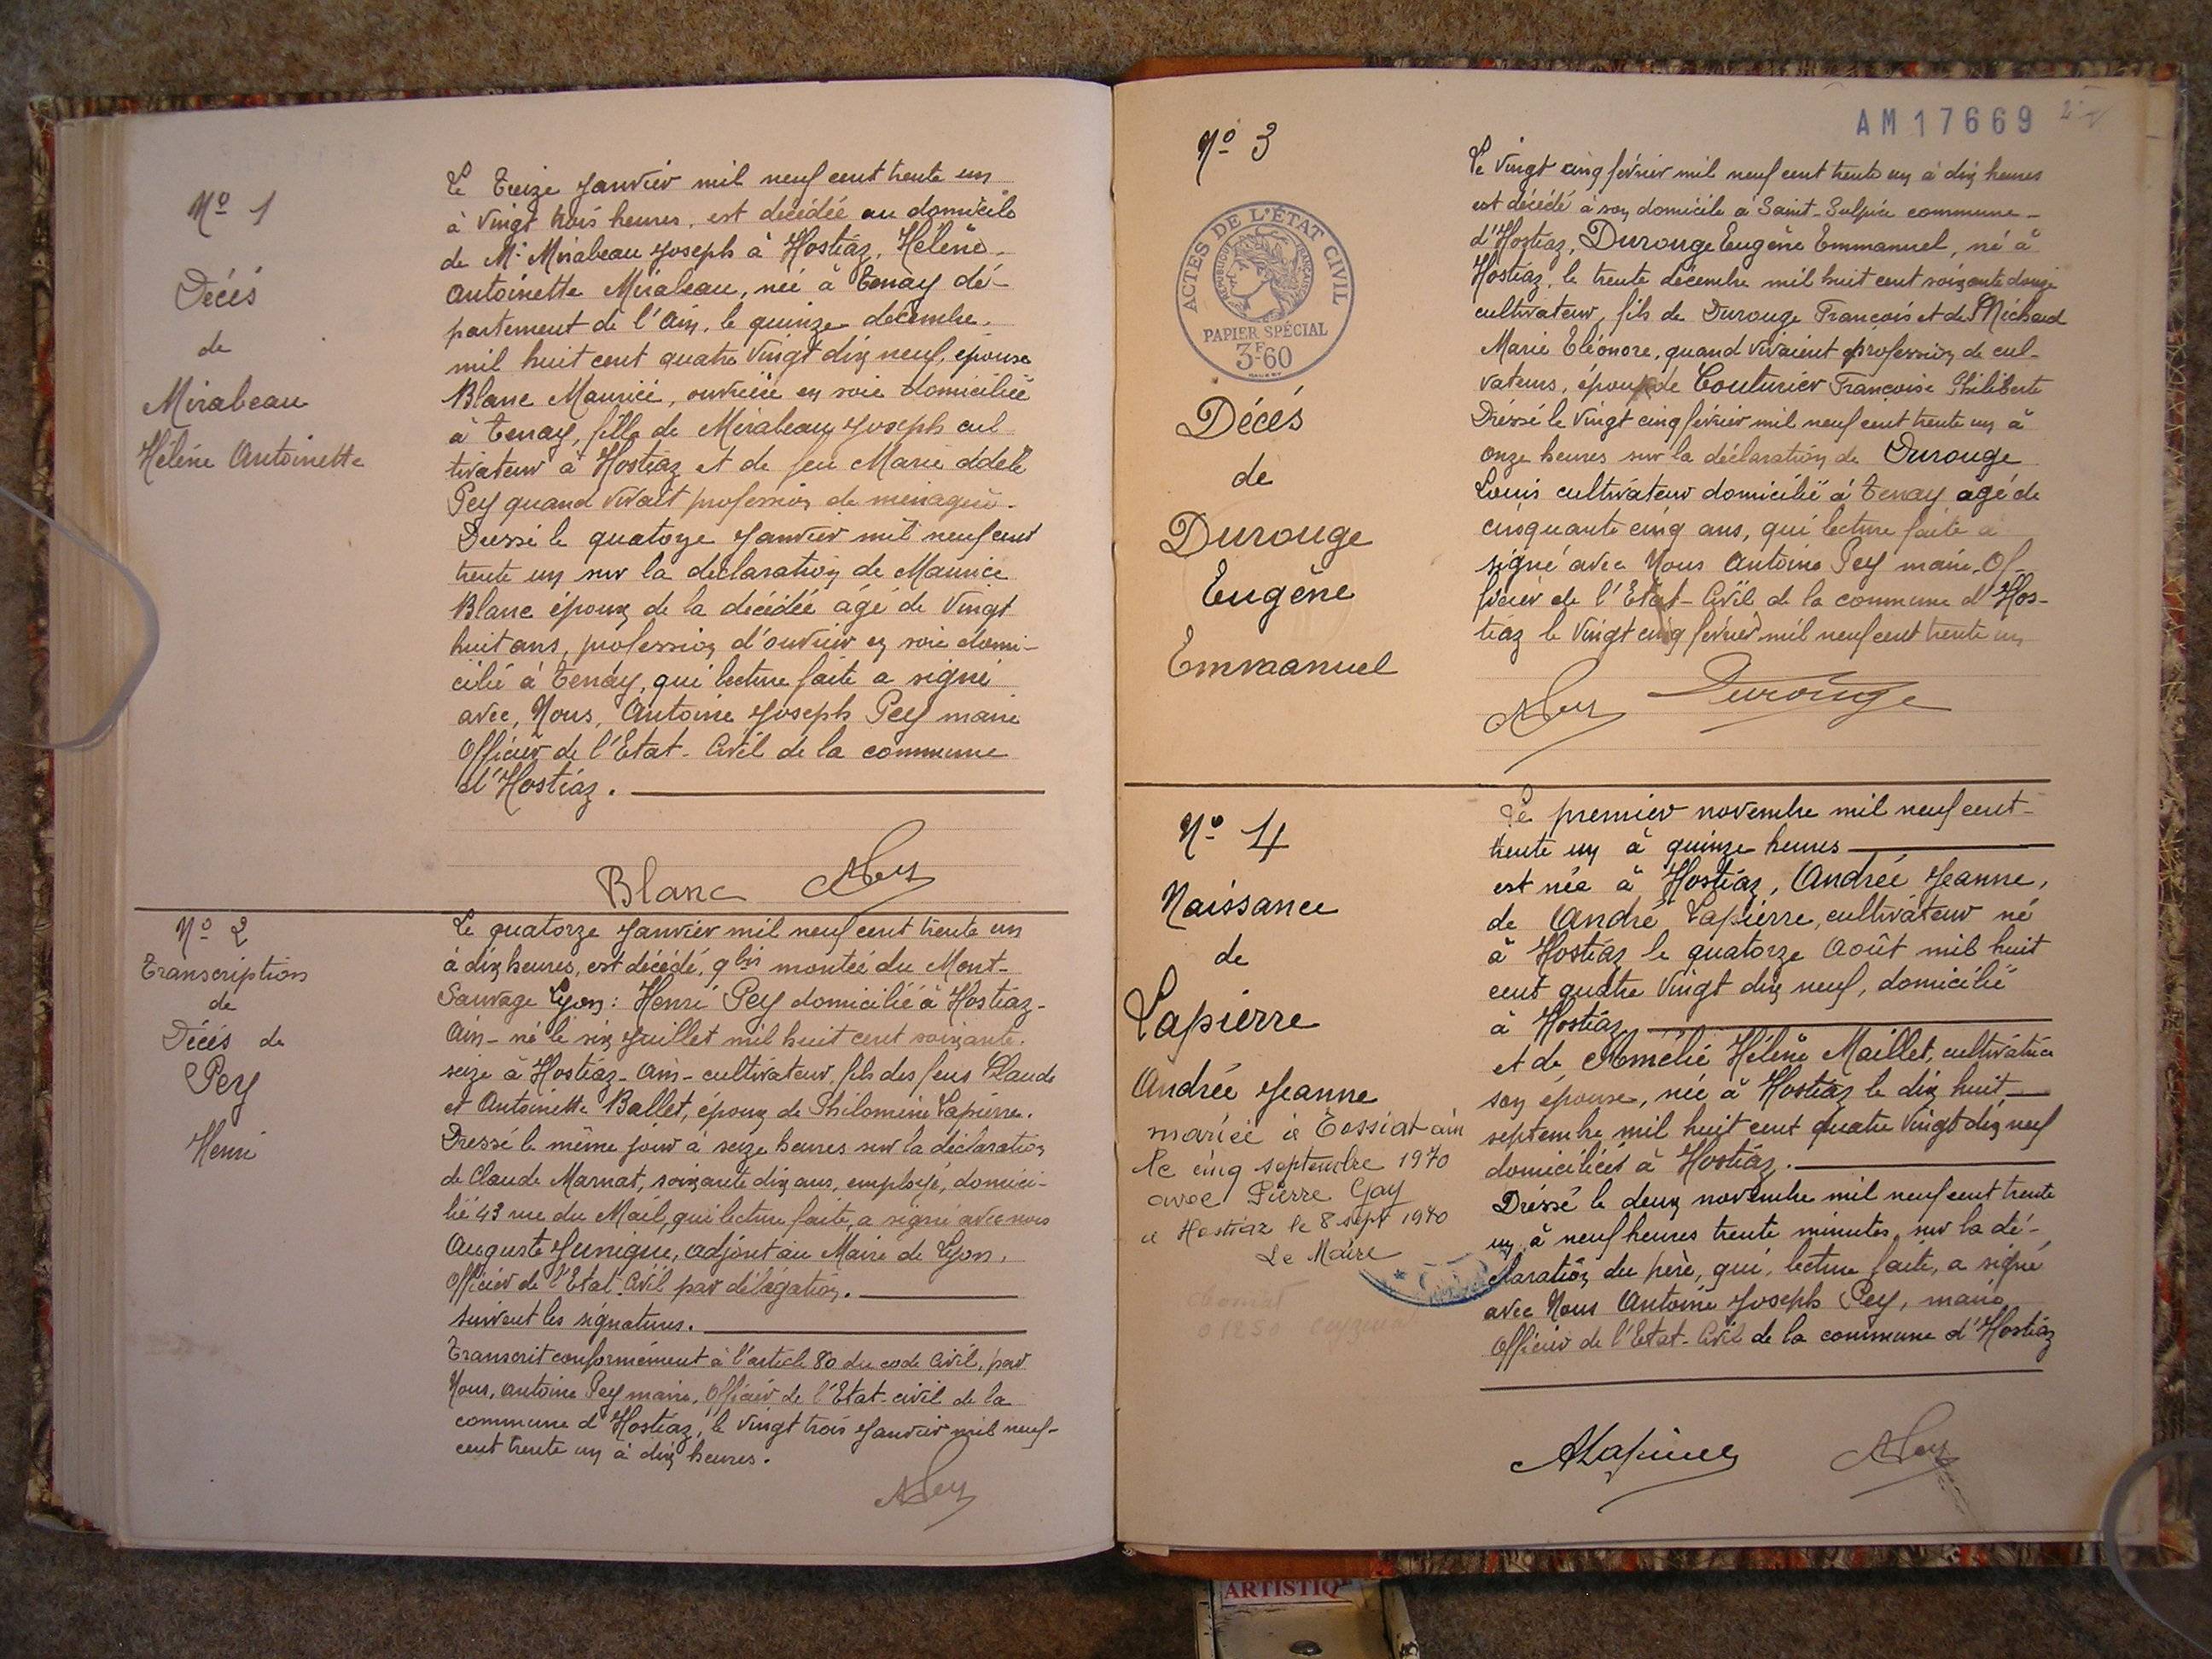 Nº 1
Décés
de
Mirabeau
Hélène Antoinette
Le treize Janvier mil neuf cent trente un
à vingt trois heures, est décédée au domicile
de Mr Mirabeau Joseph à Hostiaz, Hélène
Antoinette Mirabeau, née à Tenay dé-
partement de l'Ain, le quinze décembre
mil huit cent quatre vingt dix neuf, épouse
Blanc Maurice, ouvrière en soie domiciliée
à Tenay, fille de Mirabeau Joseph cul
tivateur à Hostiaz et de feu Marie Adele
Pey quand vivait profession de ménagère.
Dressé le quatorze Janvier mil neuf cent
trente un sur la déclaration de Maurice
Blanc époux de la décédée âgé de vingt
huit ans, profession d'ouvrier en soie domi-
cilié à Tenay, qui lecture faite a signé
avec, Nous, Antoine Joseph Pey maire
Officier de l'Etat-Civil de la commune
d'Hostiaz.
Blanc APey
Nº 2
Transcription
de
Décés de
Pey
Henri
Le quatorze Janvier mil neuf cent trente un
à dix heures, est décédé, 9 bis montée du Mont-
Sauvage Lyon: Henri Pey domicilié à Hostiaz-
Ain- né le six Juillet mil huit cent soixante
seize à Hostiaz- Ain- cultivateur, fils des feus Claude
et Antoinette Ballet, époux de Philomène Lapierre.
Dressé le même jour à seize heures sur la déclaration
de Claude Marnat, soixante dix ans, employé, domici-
lié 43 rue du Mail, qui lecture faite, a signé avec nous
Auguste Junique, adjoint au Maire de Lyon,
Officier de l'Etat-Civil par délégation.
suivent les signatures.
Transcrit conformément à l'article 80 du code Civil, par
Nous, Antoine Pey maire, Officier de l'Etat-civil de la
commune d'Hostiaz, le vingt trois Janvier mil neuf-
cent trente un à dix heures.
APey
AM17669
Nº 3
ACTES DE L'ÉTAT CIVIL
RÉPUBLIQUE FRANÇAISE
PAPIER SPÉCIAL
3F60
Décés
de
Durouge
Eugène
Emmanuel
Le vingt cinq février mil neuf cent trente un à dix heures
est décédé à son domicile à Saint-Sulpice commune-
d'Hostiaz, Durouge Eugène Emmanuel, né à
Hostiaz, le trente décembre mil huit cent soixante douze
cultivateur, fils de Durouge François et de Michaud
Marie Eléonore, quand vivaient profession de cul-
vateurs, époux de Couturier Françoise Philiberte
Dressé le vingt cinq février mil neuf cent trente un à
onze heures sur la déclaration de Durouge
Louis cultivateur domicilié à Tenay agé de
cinquante cinq ans, qui lecture faite a
signé avec Nous Antoine Pey maire-Of-
ficier de l'Etat-Civil de la commune d'Hos-
tiaz le vingt cinq février mil neuf cent trente un
APey Durouge
Nº 4
Naissance
de
Lapierre
Andrée Jeanne
mariée à Tossiat ain
le cinq septembre 1970
avec Pierre Gay
a Hostiaz le 8 sept 1970
Le Maire
Le premier novembre mil neuf cent-
trente un à quinze heures
est née à Hostiaz, Andrée Jeanne,
de André Lapierre, cultivateur né
à Hostiaz le quatorze Août mil huit
cent quatre vingt dix neuf, domicilié
à Hostiaz
et de Amélie Hélène Maillet, cultivatrice
son épouse, née à Hostiaz le dix huit
septembre mil huit cent quatre vingt dix neuf
domiciliés à Hostiaz.
Dréssé le deux novembre mil neuf cent trente
un à neuf heures trente minutes, sur la dé-
claration du père, qui, lecture faite, a signé
avec Nous Antoine Joseph Pey, maire
Officier de l'Etat-Civil de la commune d'Hostiaz
ALapierre APey
ARTISTIQ